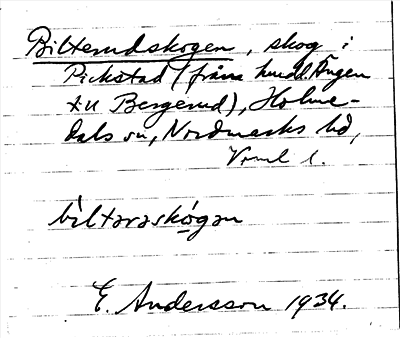 Bilterudskogen, skog i
Pickstad (från hmdl Ängen
till Bergerud), Holme-
dals sn, Nordmarks hd,
Vrml l.
biltaraskógan
E. Andersson 1934.